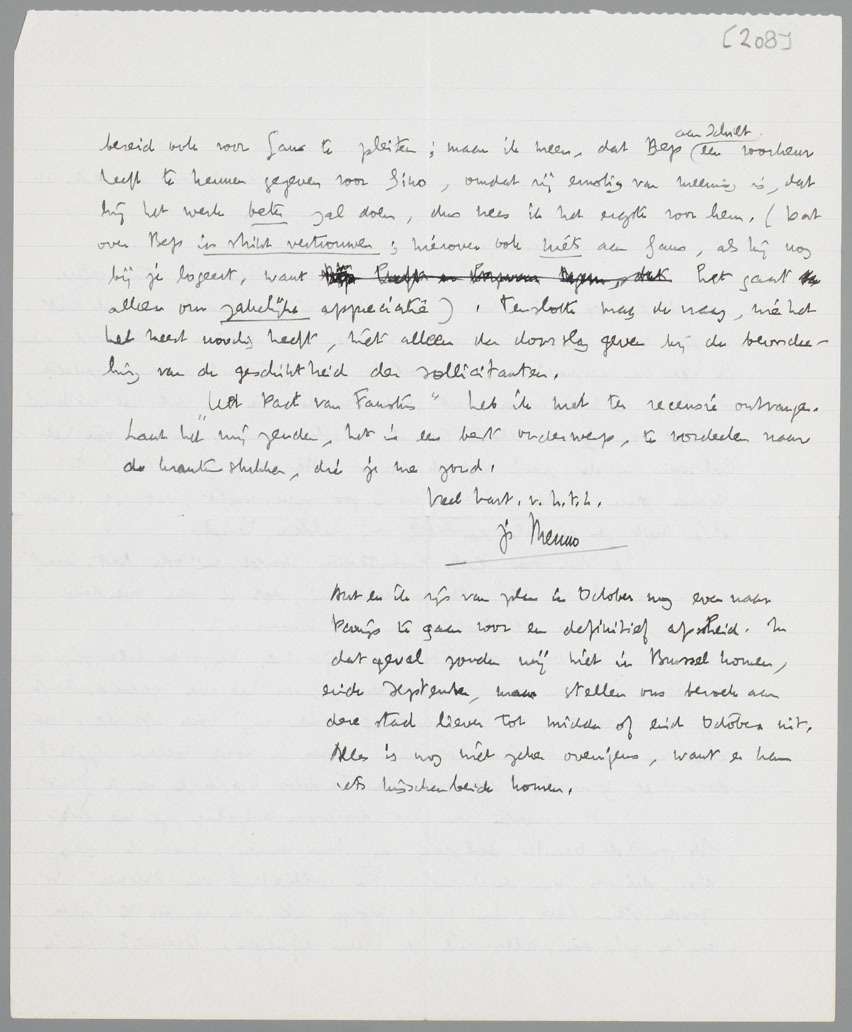 [208]
bereid ook voor Gans te pleiten; maar ik meen, dat Bep aan Schilt een voorkeur
heeft te kennen gegeven voor Gino, omdat zij ernstig van meening is, dat
hij het werk beter zal doen, dus vrees ik het ergste voor hem. (Dat
over Bep in strikt vertrouwen; hierover ook niets aan Gans, als hij nog
bij je logeert, want het gaat
alleen om zakelijke appreciatie). Tenslotte mag de vraag, wie het
het meest noodig heeft, niet alleen den doorslag geven bij de beoordee-
ling van de geschiktheid der sollicitanten.
"Het Pact van Faustus" heb ik niet ter recensie ontvangen.
Laat het mij zenden, het is een best onderwerp, te oordeelen naar
de krantenstukken, die je me zond.
Veel hart. v. h. t. h.
je Menno
Ant en ik zijn van plan in October nog even naar
Parijs te gaan voor een definitief afscheid. In
dat geval zouden wij niet in Brussel komen,
einde September, maar stellen ons bezoek aan
deze stad liever tot midden of eind October uit.
Alles is nog niet zeker overigens, want er kan
iets tusschenbeide komen.